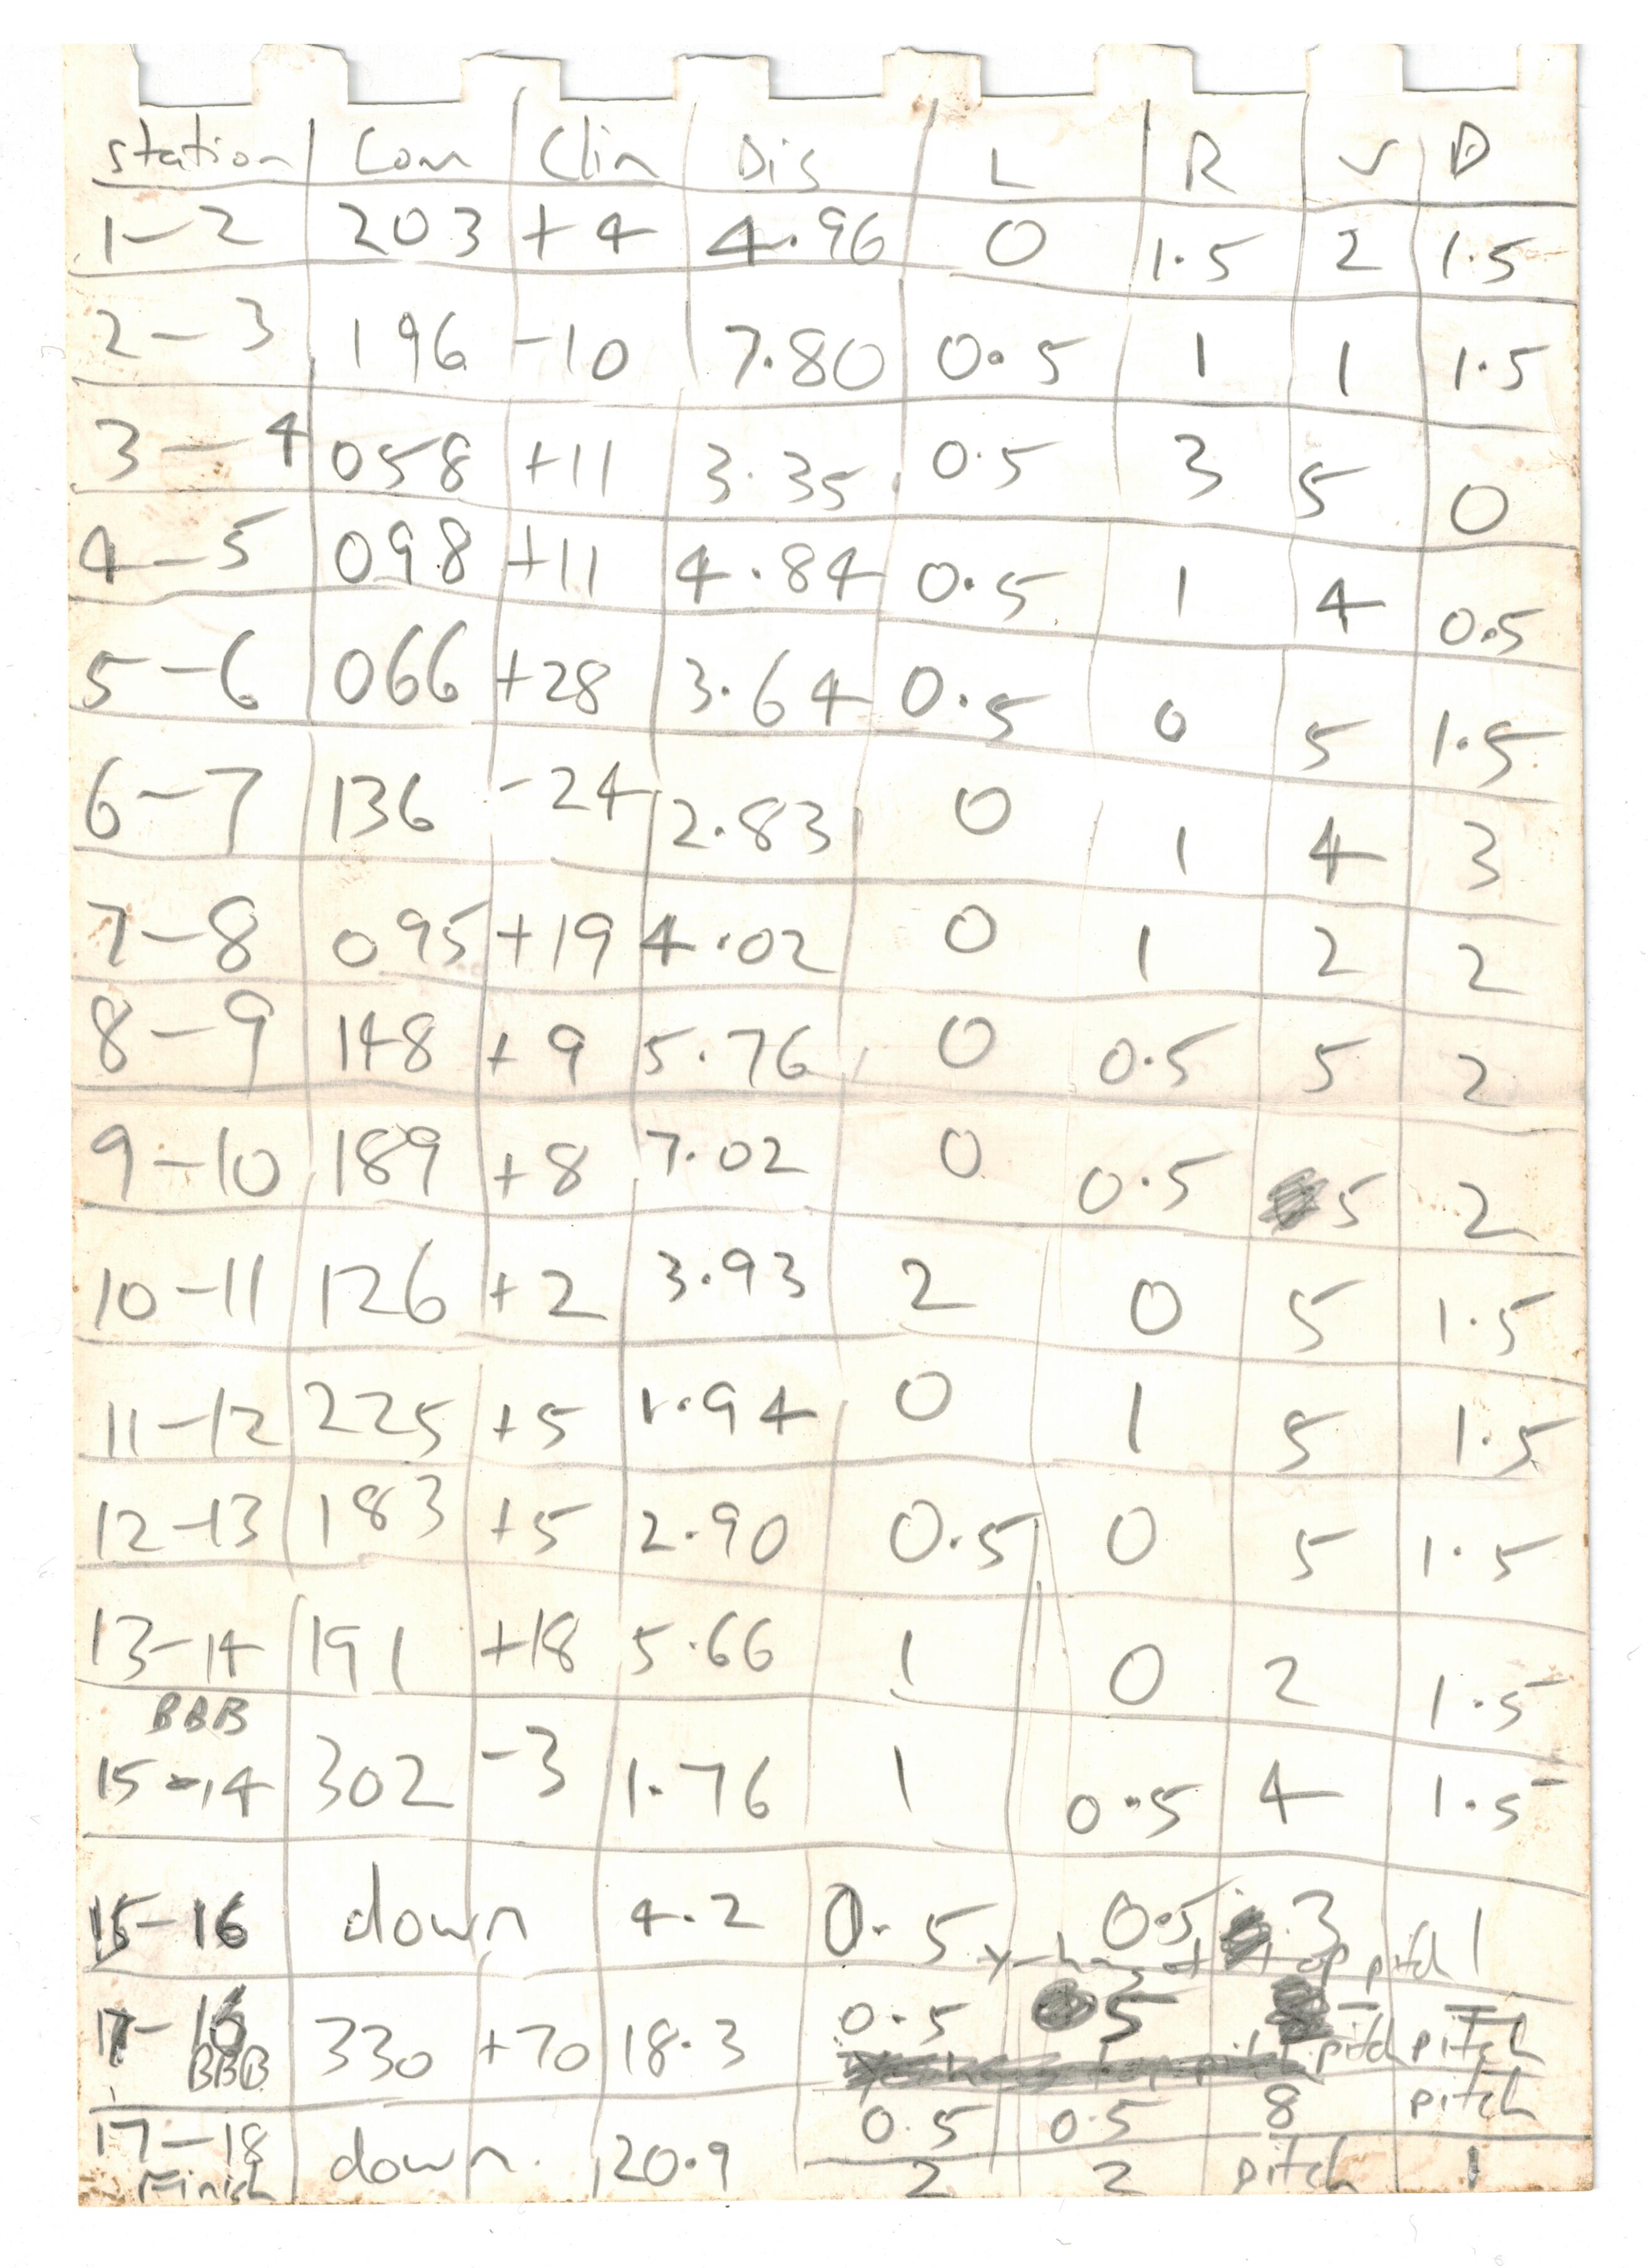 station Com Clin Dis L R V D
1-2 203 +4 4.96 0 1.5 2 1.5
2-3 196 -10 7.80 0.5 1 1 1.5
3-4 058 +11 3.35 0.5 3 5 0
4-5 098 +11 4.84 0.5 1 4 0.5
5-6 066 +28 3.64 0.5 0 5 1.5
6-7 136 -24 2.83 0 1 4 3
7-8 095 +19 4.02 0 1 2 2
8-9 148 +9 5.76 0 0.5 5 2
9-10 189 +8 7.02 0 0.5 5 2
10-11 126 +2 3.93 2 0 5 1.5
11-12 225 +5 1.94 0 1 5 1.5
12-13 183 +5 2.90 0.5 0 5 1.5
13-14 191 +18 5.66 1 0 2 1.5
BBB
15-14 302 -3 1.76 1 0.5 4 1.5
15-16 down 4.2 0.5 0.5 3 1
y-hang at top pitch
17-16 330 +70 18.3 0.5 5 pitch pitch
BBB
0.5 0.5 8 pitch
17-18 down 20.9 2 2 pitch 1
Finish